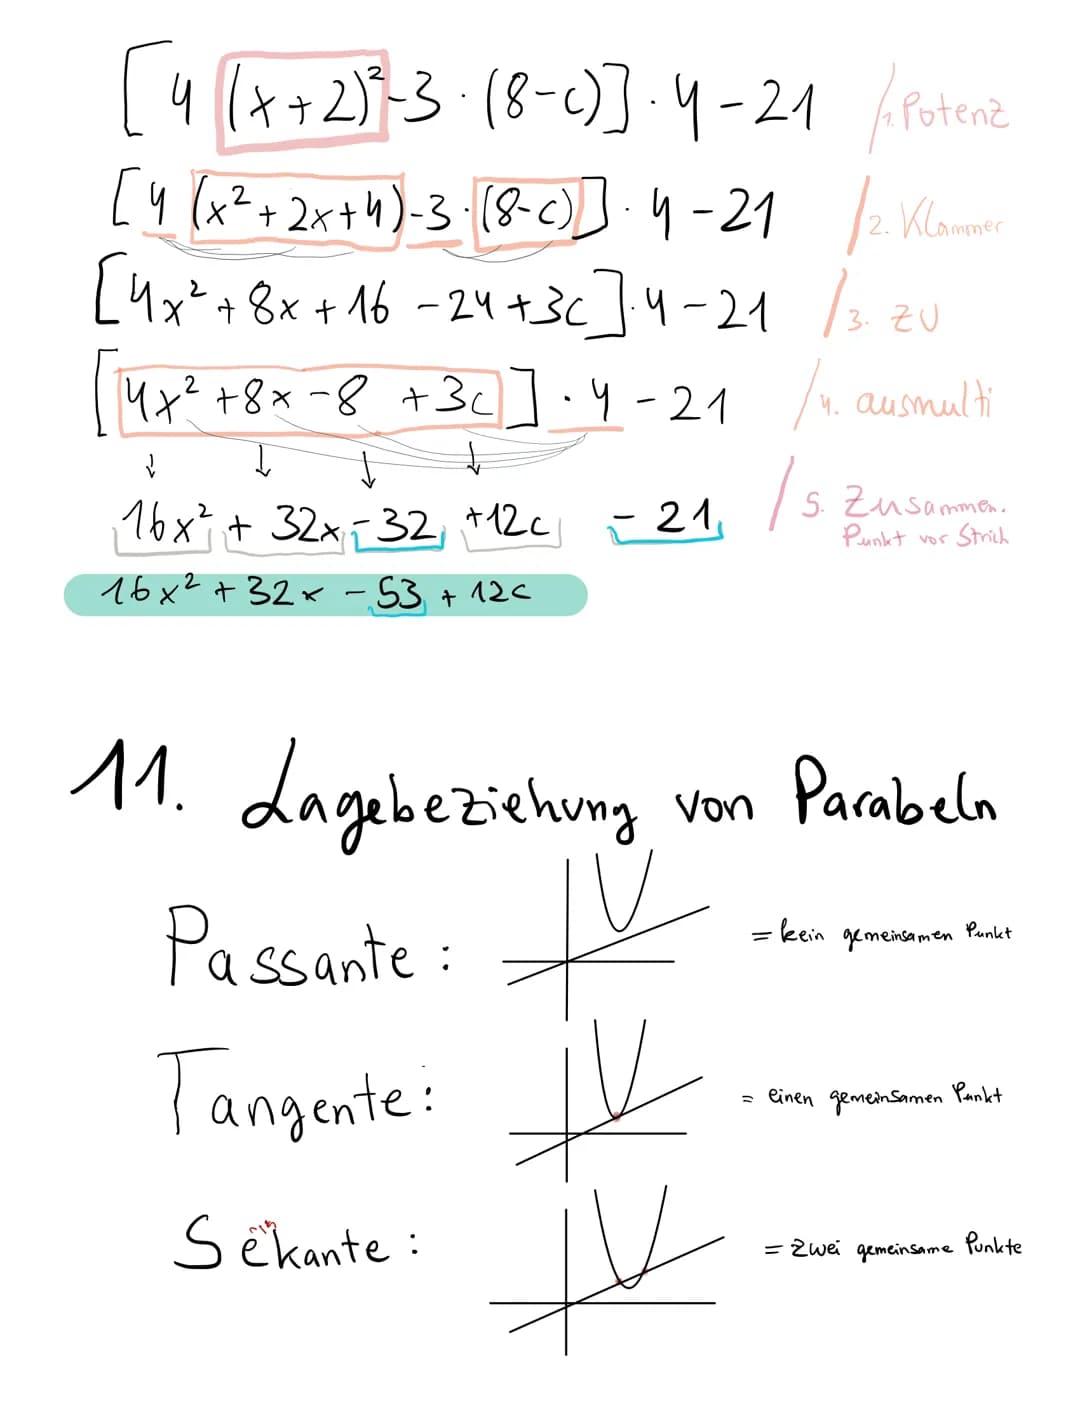 [4 (x+2)²-3·(8-c)]·4-21 /1. Potenz
[4 (x²+2x+4)-3·(8-c)]·4-21 /2. Klammer
[4x²+8x+16-24+3c]·4-21 /3. ZU
[4x²+8x-8+3c]·4-21 /4. ausmulti
16x²+32x-32+12c-21 /5. Zusammen.
Punkt vor Strich
16x²+32x-53+12c
11. Lagebeziehung von Parabeln
Passante: = kein gemeinsamen Punkt
Tangente: = einen gemeinsamen Punkt
Sekante: = zwei gemeinsame Punkte